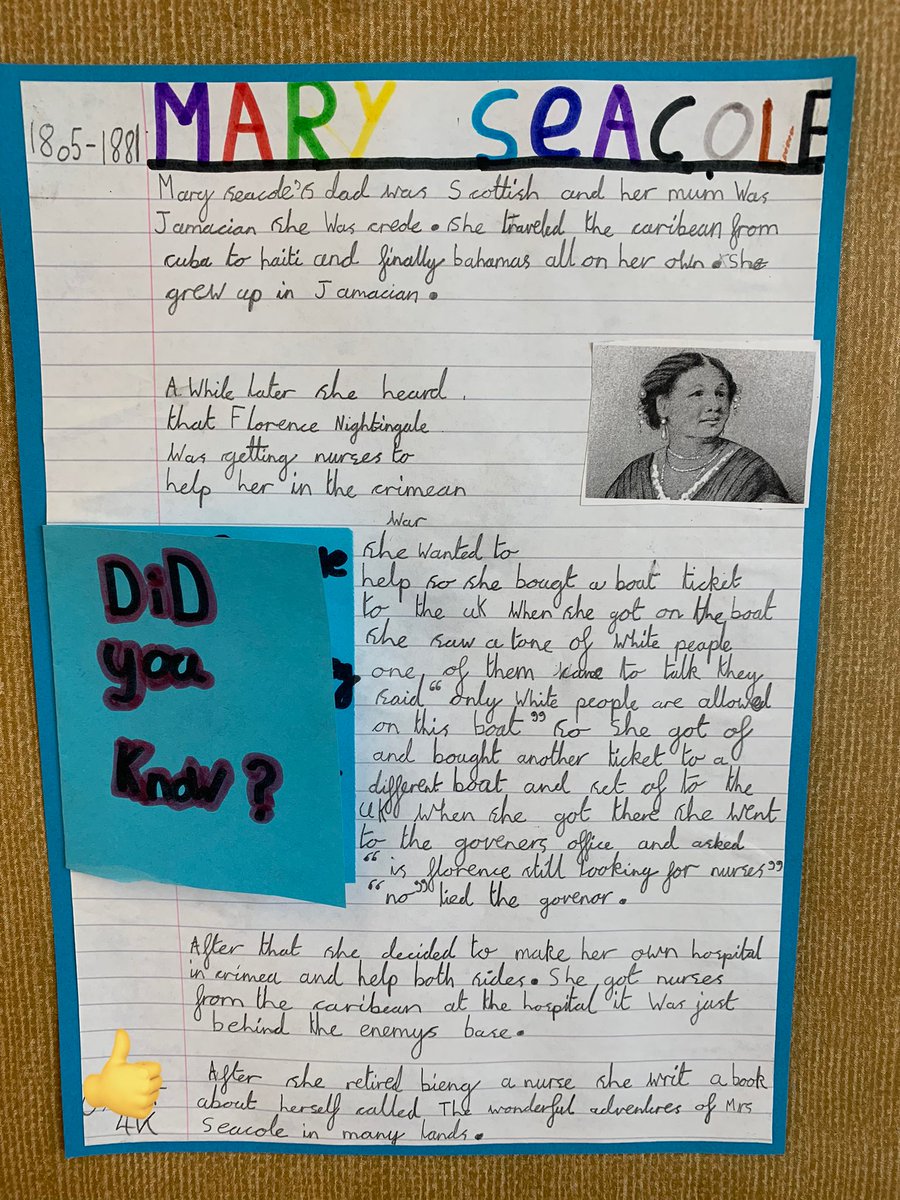 1805-1881
MARY SEACOLE
Mary seacole's dad was Scottish and her mum Was
Jamacian she Was crede. she traveled the caribean from
cuba to haiti and finally bahamas all on her own. she
grew up in Jamacian.
A While later she heard
that Florence Nightingale
Was getting nurses to
help her in the crimean
war
she wanted to
help so she bougt a boat ticket
to the uk when she got on the boat
she saw a tone of white people
one of them to talk they
said "only white people are allowed
on this boat" so she got of
and bought another ticket to a
different boat and set of to the
UK when she got there she went
to the goveners office and asked
"is florence still looking for nurses"
"no" lied the govenor.
DiD
you
Know?
After that she decided to make her own hospital
in crimea and help both sides. She got nurses
from the caribean at the hospital it Was just
behind the enemys base.
After she retired bieng a nurse she writ a book
about herself called The wonderful adventures of Mrs
Seacole in many lands.
4K